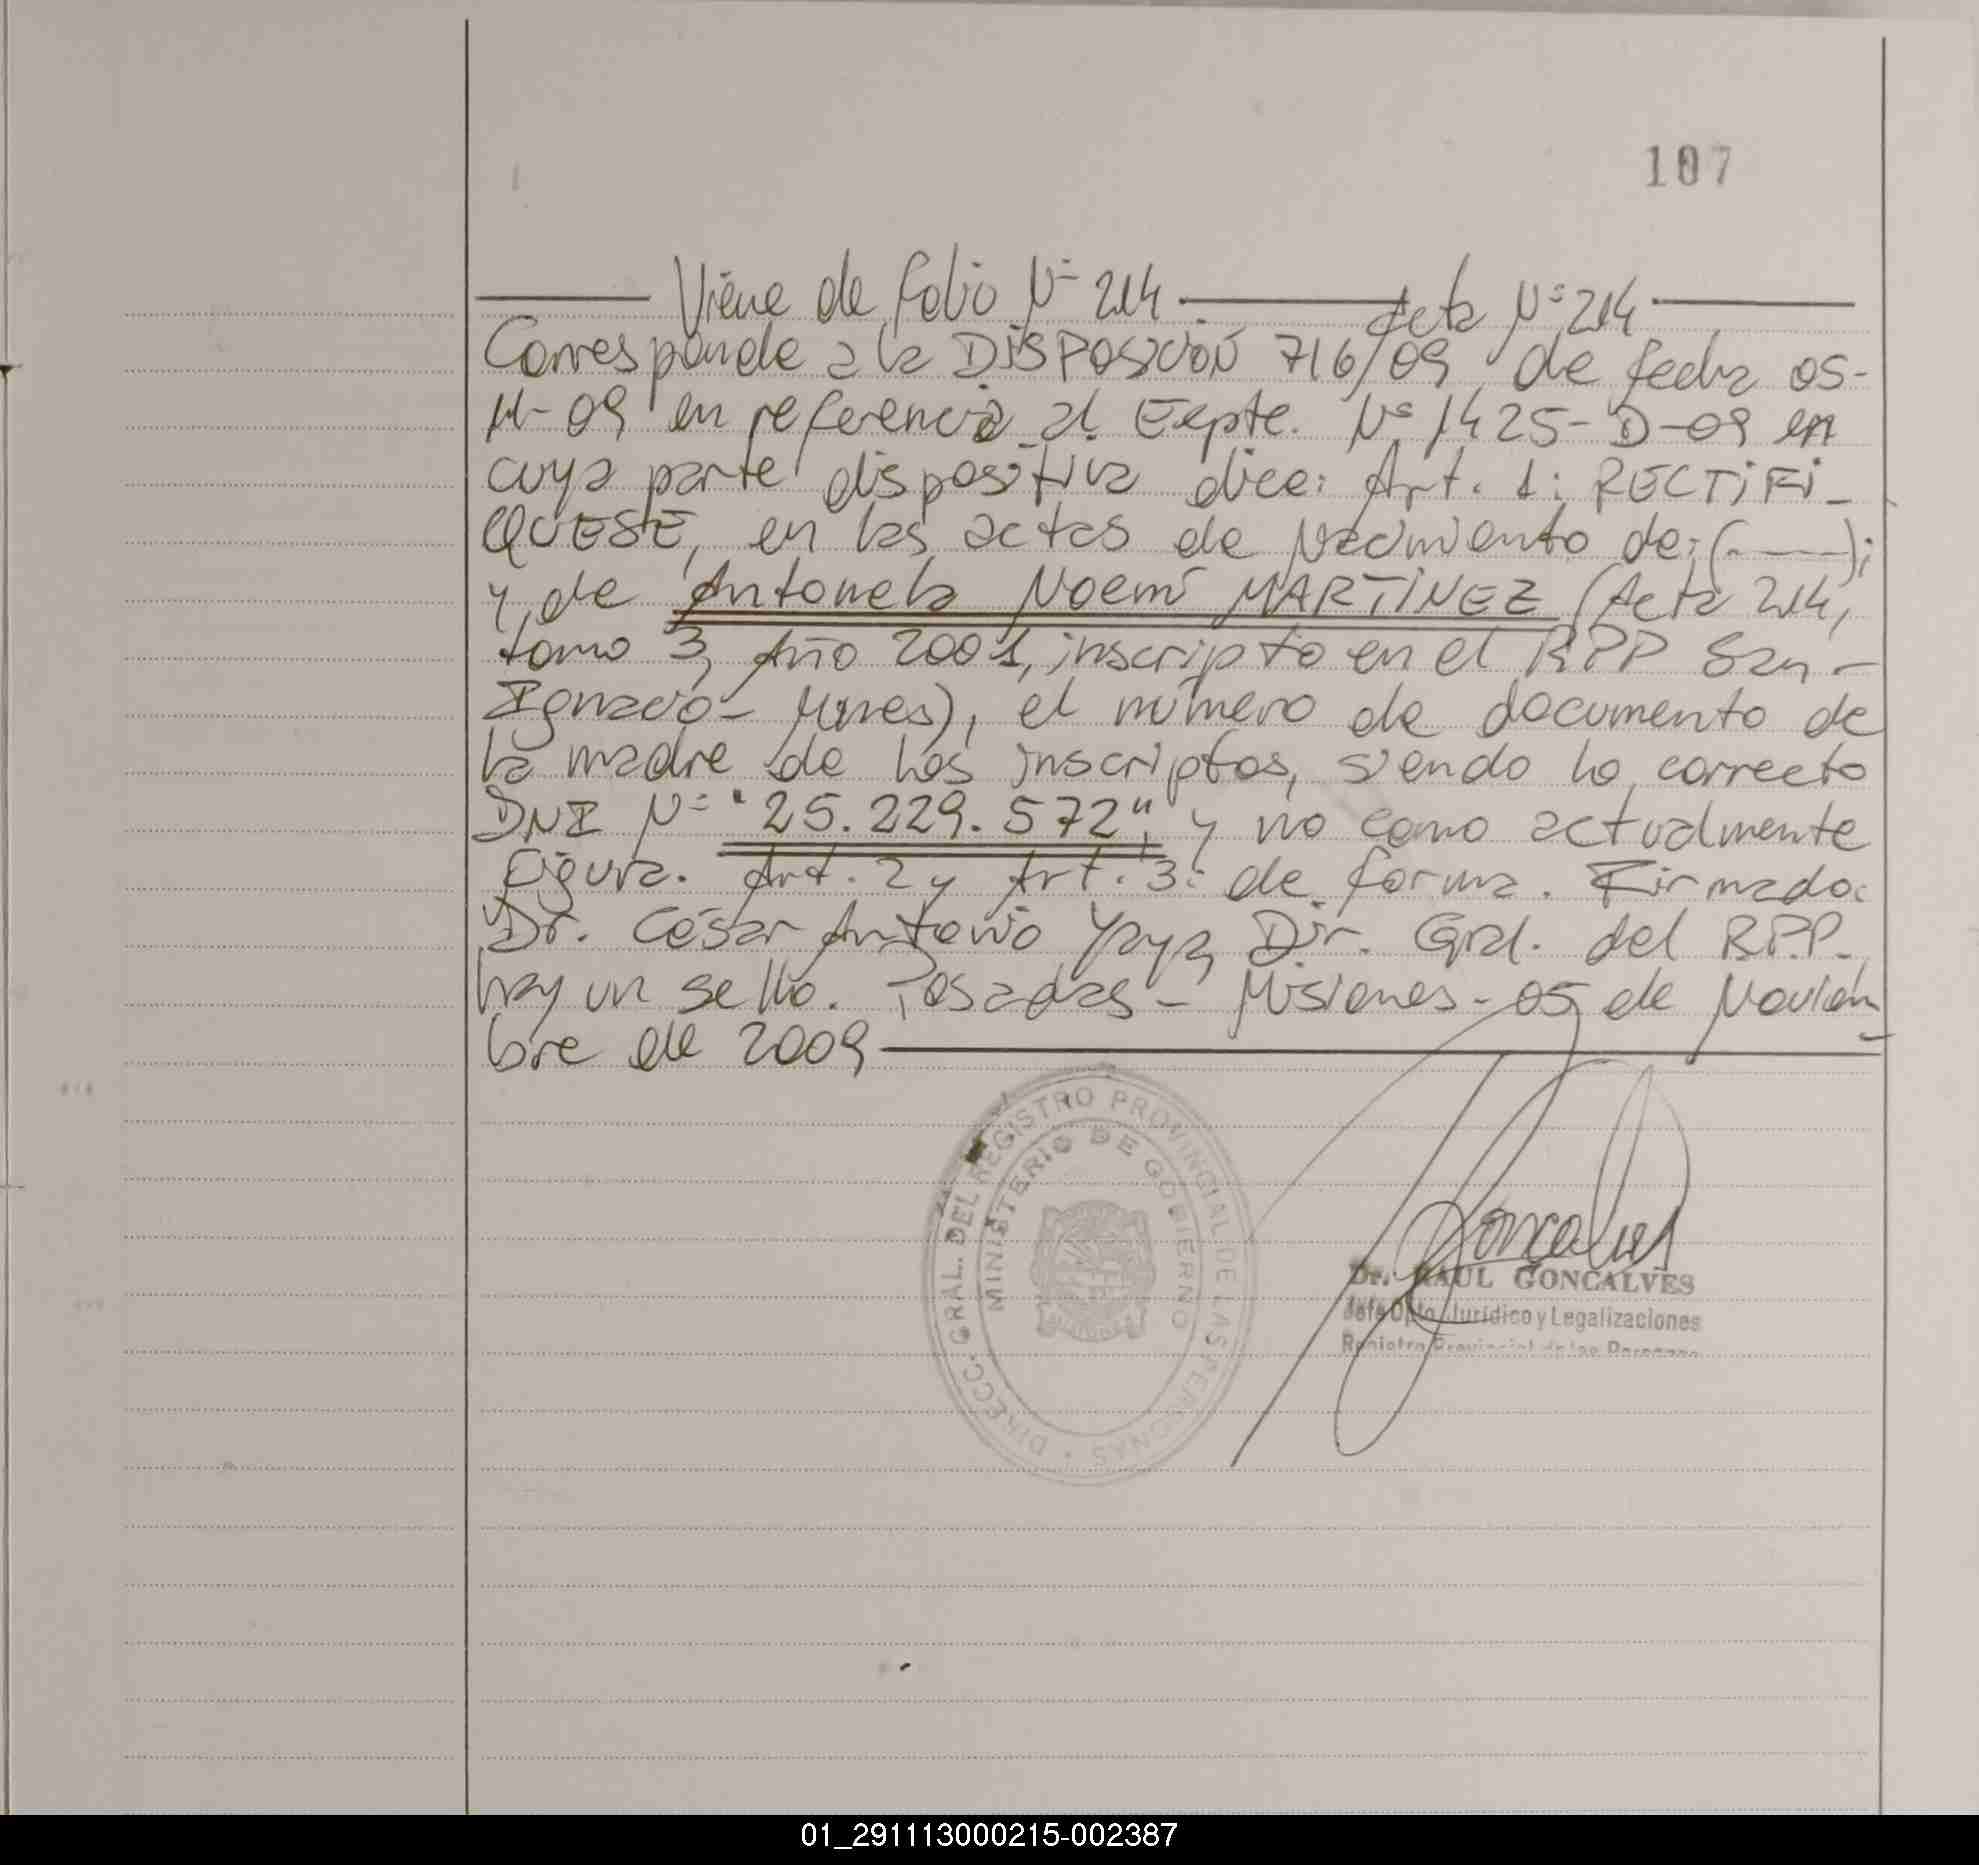 107
Viene de folio Nº 214 Acta Nº 214
Corresponde a la DISPOSICIÓN 716/09 de fecha 05-
11-09 en referencia al Expte. Nº 1425-D-09 en
cuya parte dispositiva dice: Art. 1: RECTIFI-
QUESE, en las actas de Nacimiento de: (. ——);
y de Antonela Noemí MARTINEZ (Acta 214,
tomo 3, Año 2001, inscripto en el RPP San-
Ignacio - Mnes), el número de documento de
la madre de los inscriptos, siendo lo correcto
DNI Nº "25.229.572", y no como actualmente
figura. Art. 2 y Art. 3: de forma. Firmado:
Dr. César Antonio Yaya, Dir. Gral. del R.P.P.
hay un sello. Posadas - Misiones - 05 de Noviem
bre de 2009
DIRECC. GRAL. DEL REGISTRO PROVINCIAL DE LAS PERSONAS
MINISTERIO DE GOBIERNO
MISIONES
Goncalves
Dr. RAUL GONCALVES
Jefe Dpto. Jurídico y Legalizaciones
Registro Provincial de las Personas
01_291113000215-002387